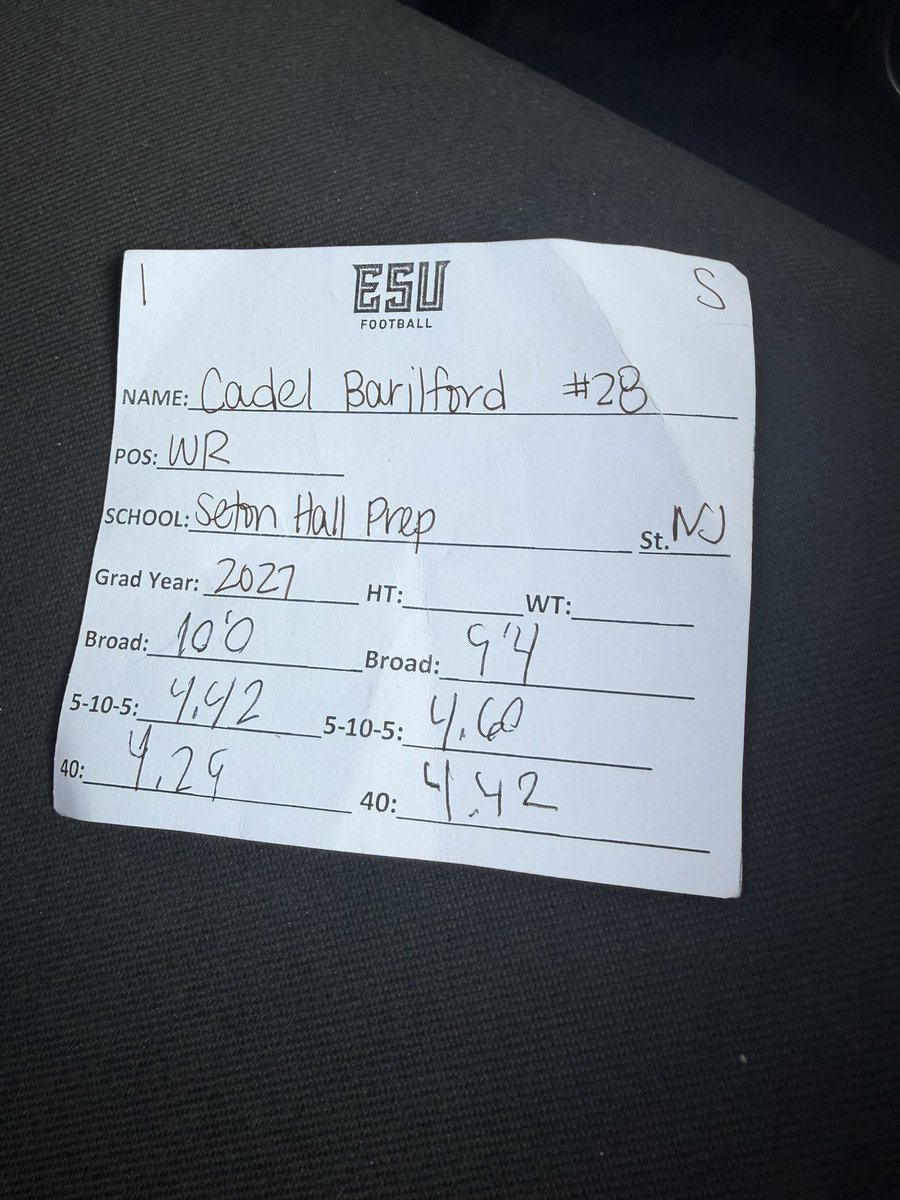 1 ESU S
FOOTBALL
NAME: Cadel Barilford #28
POS: WR
SCHOOL: Seton Hall Prep St. NJ
Grad Year: 2027 HT: WT:
Broad: 10'0 Broad: 9'4
5-10-5: 4.42 5-10-5: 4.60
40: 4.29 40: 4.42